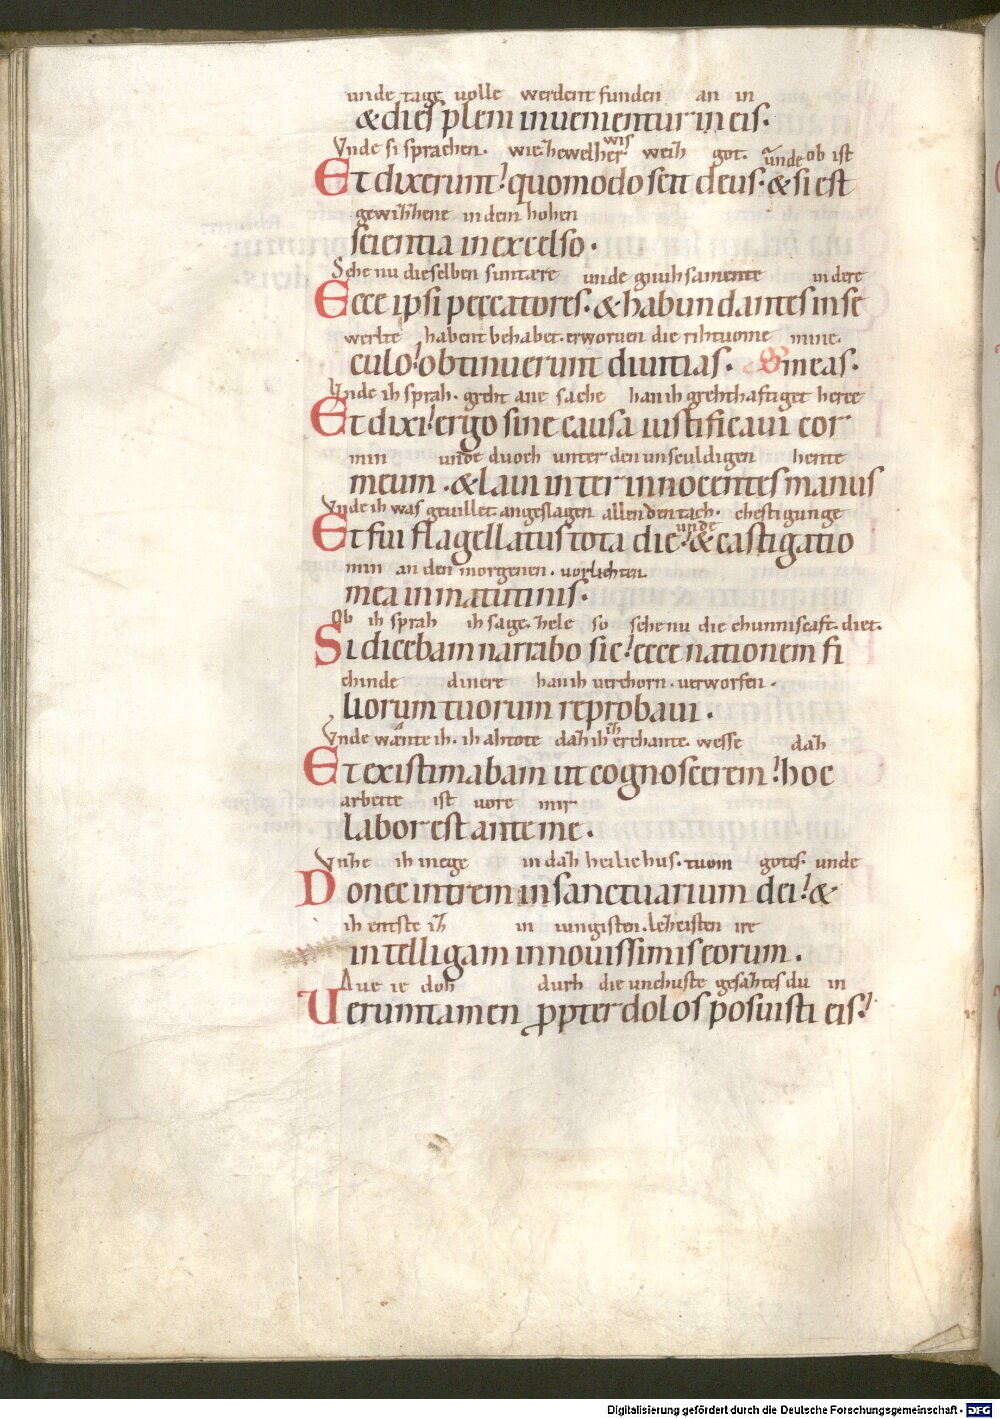 unde tage volle werdent funden an in
& dies pleni invenientur in eis.
Vnde si sprachen. wie. hewelher wis weih got. unde ob ist
Et dixerunt? quomodo scit deus. & si est
gewihhene in dem hohen
scientia in excelso.
Sehe nu dieselben suntare unde gnuhsamente in dere
Ecce ipsi peccatores. & habundantes in se
werlte habent behabet. erworven die rihtuome mine.
culo? obtinuerunt divitias. meas.
Vnde ih sprah. greht ane sache han ih grehthaftiget herce
Et dixi? ergo sine causa iustificavi cor
min unde dvoch unter den unsculdigen hente
meum. & lavi inter innocentes manus
Vnde ih was gevillet. angeslagen allen den tach. unde chestigunge
Et fui flagellatus tota die? & castigatio
min an den morgenen. vorliehten
mea in matutinis.
Ob ih sprah ih sage. hele so sehe nu die chunniscaft. diet.
Si dicebam narrabo sic? ecce nationem fi
chinde dinere han ih verchorn. verworfen.
liorum tuorum reprobavi.
Vnde wante ih. ih ahtote dah ih erchante. wesse dah
Et existimabam ut cognoscerem? hoc
arbeite ist vore mir
labor est ante me.
Vnhe ih inege in dah heiliehus. tuom gotes. unde
Donec intrem in sanctuarium dei? &
ih entste ih in iungisten. leheisten ire
intelligam in novissimis eorum.
Aue ie doh durh die unchuste gesahtes du in
Ueruntamen ppter dolos posuisti eis?
Digitalisierung gefördert durch die Deutsche Forschungsgemeinschaft - DFG